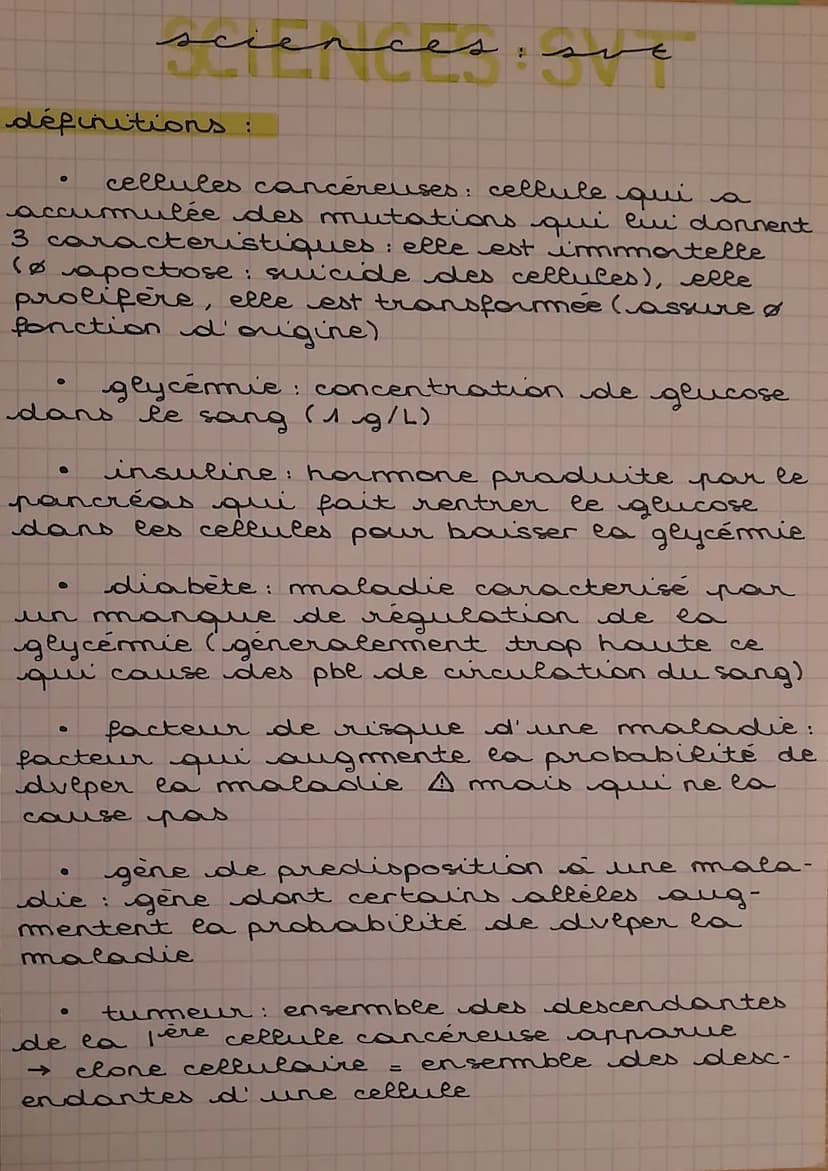 SCIENCES : SVT
sciences : svt
définitions :
• cellules cancéreuses : cellule qui a
accumulée des mutations qui lui donnent
3 caracteristiques : elle est immortelle
(ø apoctose : suicide des cellules), elle
prolifère, elle est transformée (assure ø
fonction d'origine)
• glycémie : concentration de glucose
dans le sang (1 g/L)
• insuline : hormone produite par le
pancréas qui fait rentrer le glucose
dans les cellules pour baisser la glycémie
• diabète : maladie caracterisé par
un manque de régulation de la
glycémie (géneralement trop haute ce
qui cause des pbl de circulation du sang)
• facteur de risque d'une maladie :
facteur qui augmente la probabilité de
dvlper la maladie ⚠ mais qui ne la
cause pas
• gène de predisposition à une mala-
die : gène dont certains allèles aug-
mentent la probabilité de dvlper la
maladie
• tumeur : ensemble des descendantes
de la 1ère cellule cancéreuse apparue
→ clone cellulaire = ensemble des desc-
endantes d'une cellule